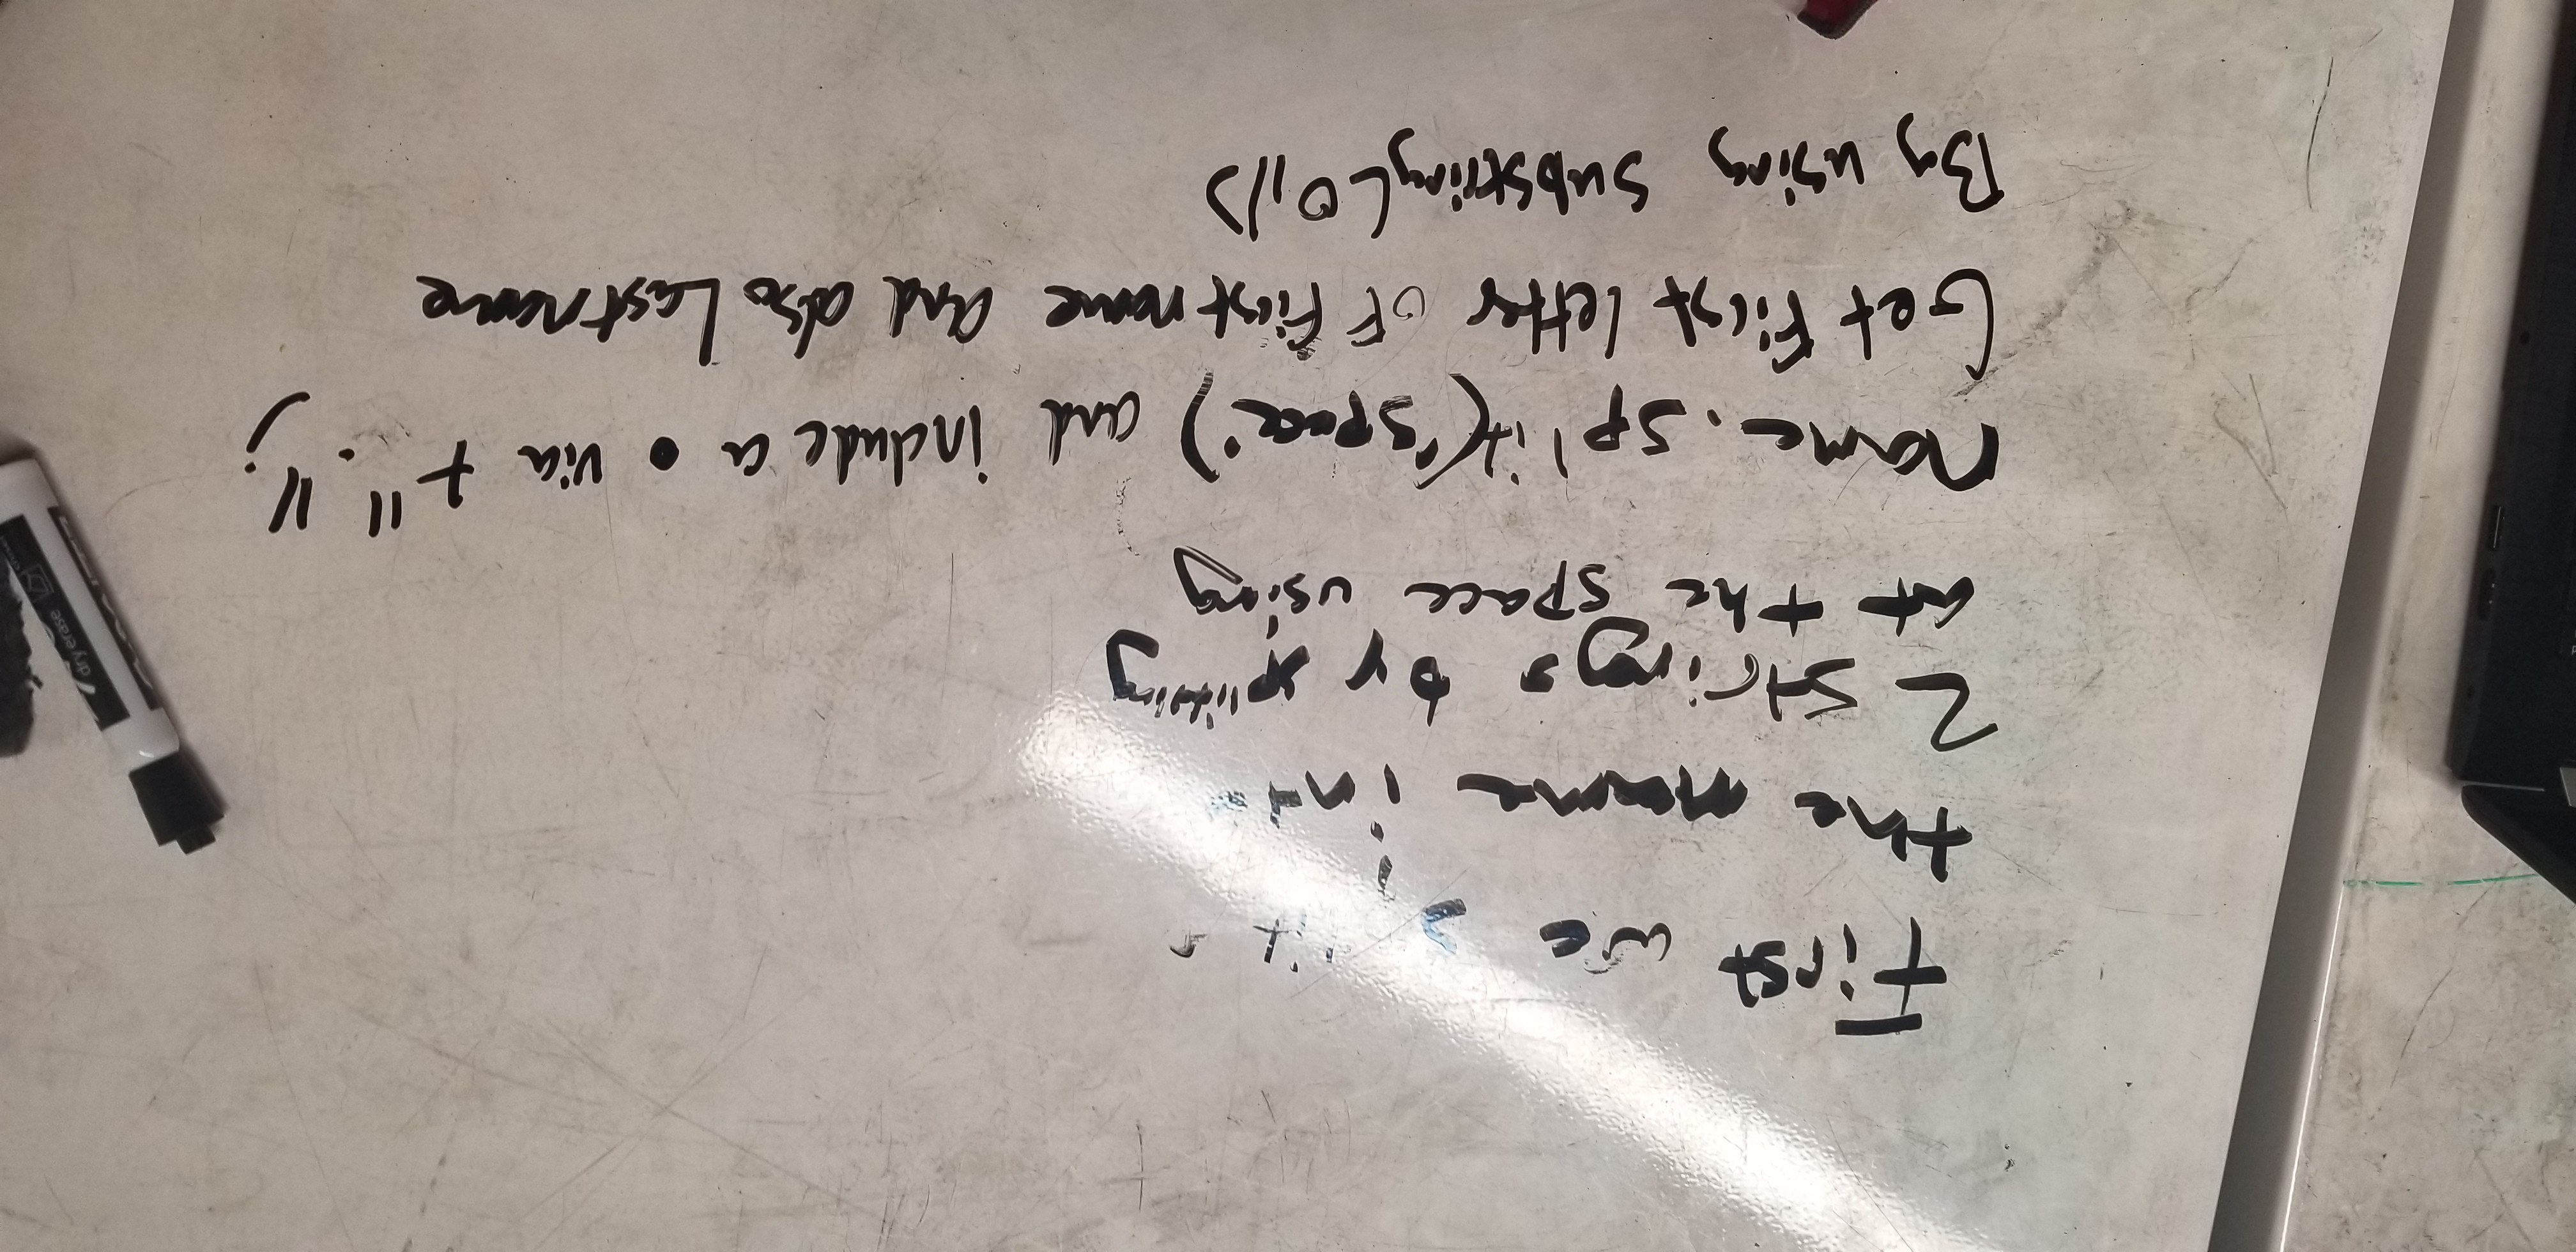 First we split
the name into
2 strings by splitting
at the space using
name.split('space') and include a • via + ".";
Get First letter of First name and also Last name
By using substring(0,1)
dry erase